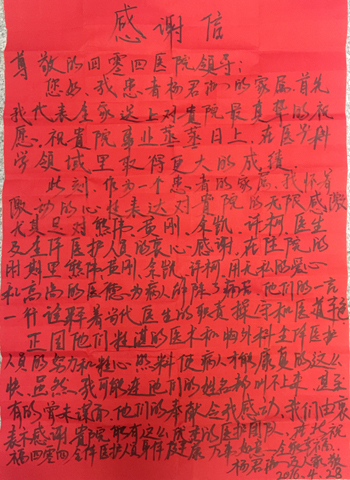 感谢信
尊敬的四零四医院领导:
您好,我患者杨君的家属,首先
我代表全家送上对贵院最真挚的祝
愿,祝贵院事业蒸蒸日上,在医学科
学领域里取得更大的成绩。
此刻,作为一个患者的家属,我怀着
激动的心情表达对贵院的无限感激
尤其是对熊伟、黄刚、余凯、许柯,医生
及全体医护人员的衷心感谢,在住院的
时刻里熊伟黄刚、余凯、许柯,用无私的爱心
和高尚的医德为病人解除了病苦,他们的一言
一行诠释着当代医生的职责操守和医技
正因他们精湛的医术和胸外科全体医护
人员的努力和精心照料使病人才能康复的这么
快。虽然,我可能连他们的姓名都叫不上来,甚至
有的尚未谋面,他们的奉献令我感动,我们由衷
表示感谢贵院能有这么优秀的医护团队,
福四零四全体医护人员身体健康万事如意,全家幸福。
杨君
2016.4.28